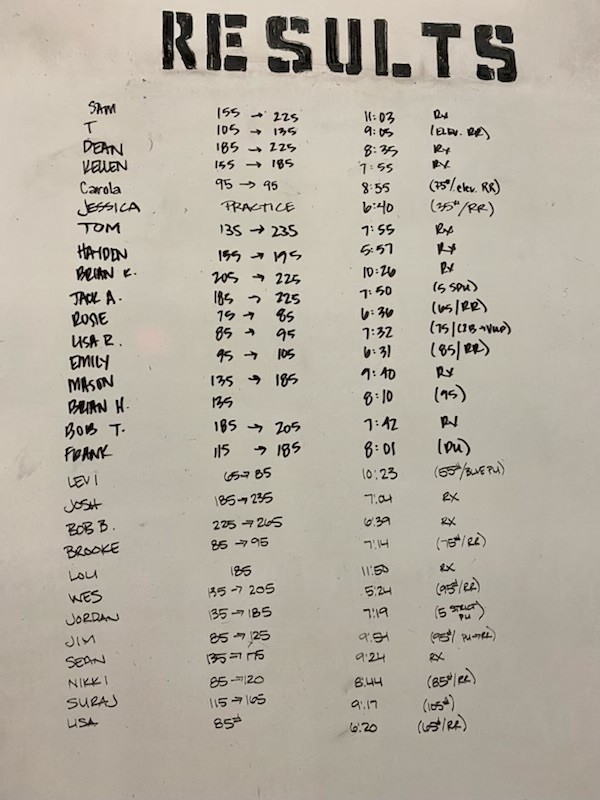 RESULTS
SAM 155 → 225 11:03 Rx
T 105 → 135 9:05 (ELEV. RR)
DEAN 185 → 225 8:35 Rx
KELLEN 155 → 185 7:55 Rx
Carola 95 → 95 8:55 (75#/elev. RR)
JESSICA PRACTICE 6:40 (35#/RR)
TOM 135 → 235 7:55 Rx
HAYDEN 155 → 195 5:57 Rx
BRIAN K. 205 → 225 10:26 Rx
JACK A. 185 → 225 7:50 (5 SPU)
ROSIE 75 → 85 6:36 (65/RR)
LISA R. 85 → 95 7:32
EMILY 95 → 105 6:31 (85/RR)
MASON 135 → 185 9:40 Rx
BRIAN H. 135 8:10 (95)
BOB T. 185 → 205 7:42 Rx
FRANK 115 → 185 8:01 (PU)
LEVI 65 → 85 10:23 (55#/BLUE PU)
JOSH 185 → 235 7:04 RX
BOB B. 225 → 265 6:39 RX
BROOKE 85 → 95 7:14 (75#/RR)
LOU 185 11:50 RX
WES 135 → 205 5:24 (95#/RR)
JORDAN 135 → 185 7:19 (5 STRICT PU)
JIM 85 → 125 9:54 (95#/ PU→RR)
SEAN 135 → 175 9:24 RX
NIKKI 85 → 120 8:44 (85#/RR)
SURAJ 115 → 165 9:17 (105#)
LISA 85# 6:20 (65#/RR)